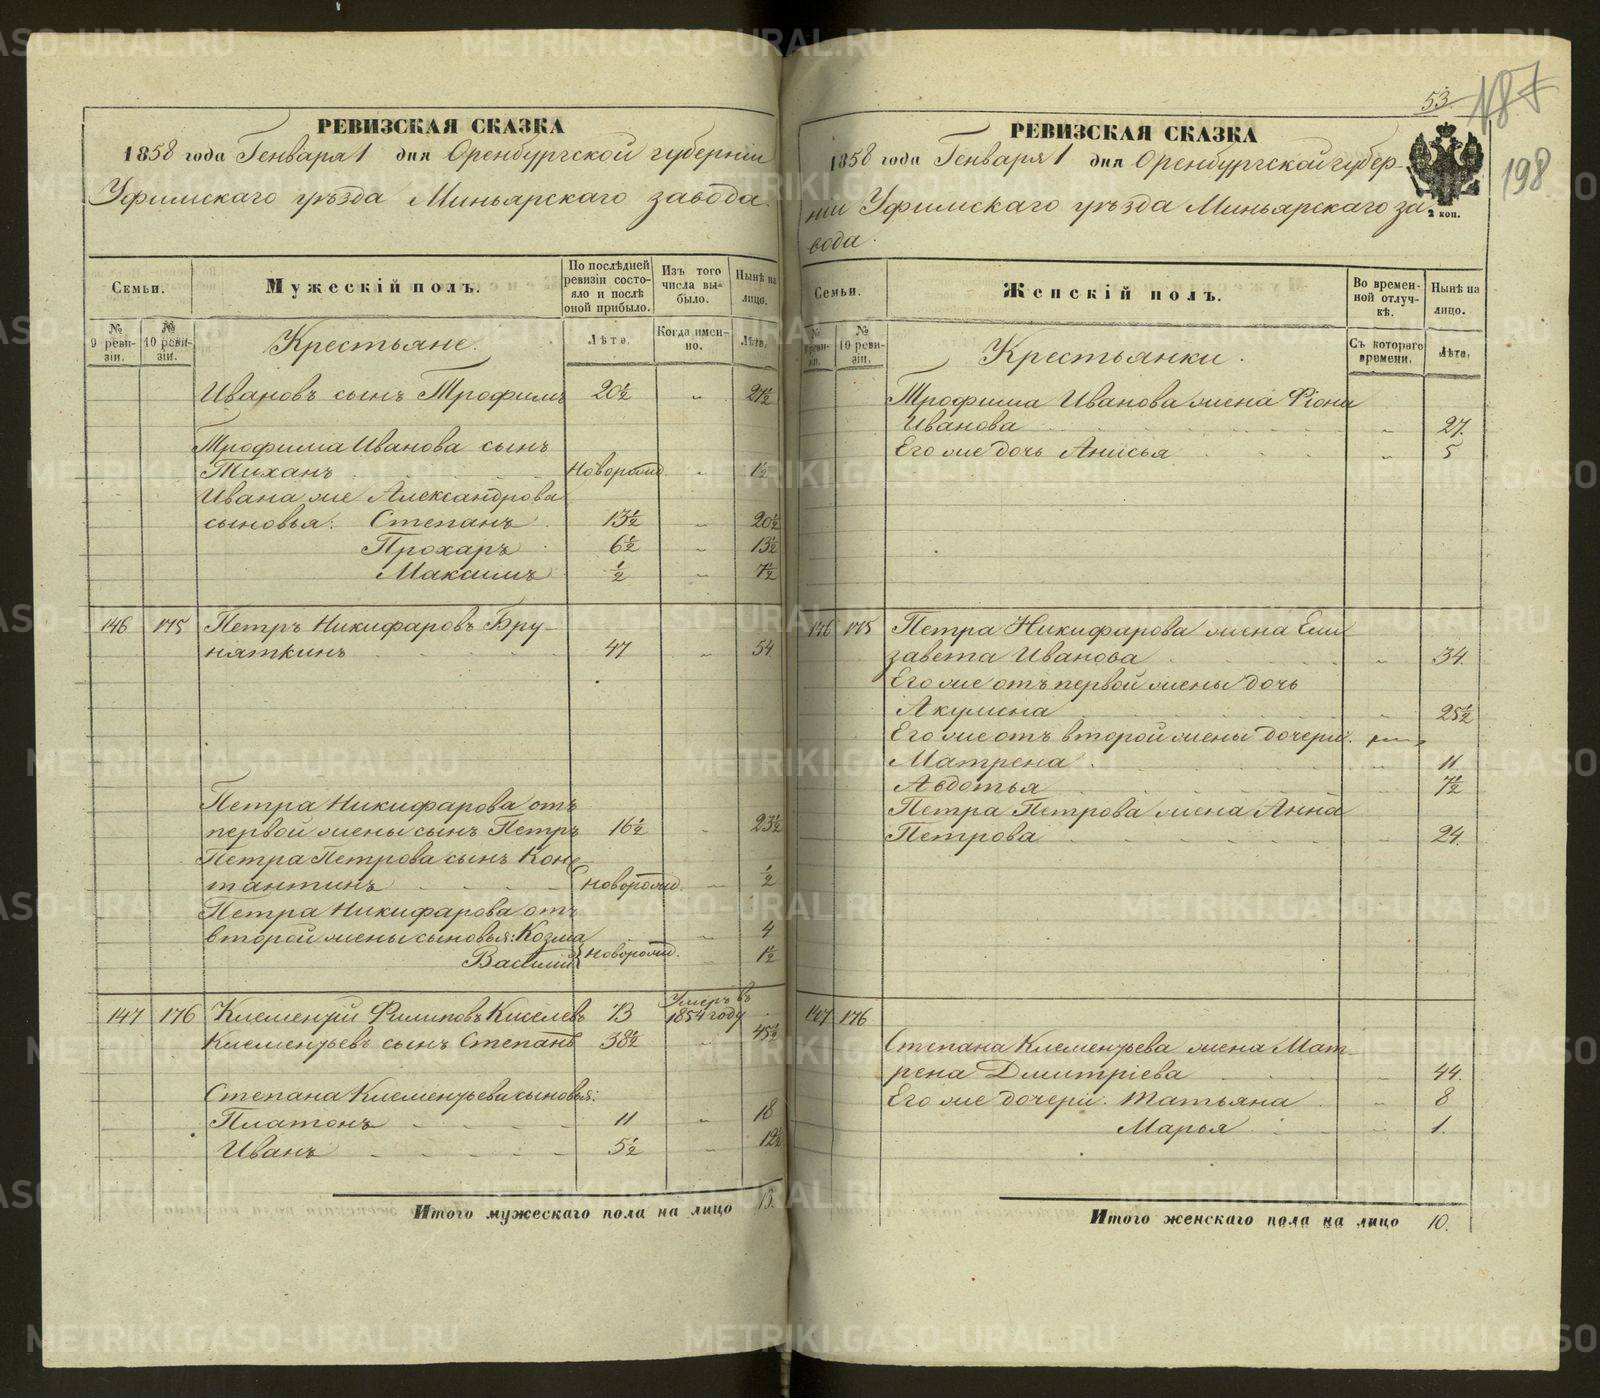 РЕВИЗСКАЯ СКАЗКА
1858 года Генваря 1 дня Оренбургской губернии
Уфимскаго уѣзда Миньярскаго завода.
Семьи.
Мужескій полъ.
По послѣдней ревизіи состояло и послѣ оной прибыло.
Изъ того числа выбыло.
Нынѣ на лицо.
№ 9 ревизіи.
№ 10 ревизіи.
Крестьяне.
Лѣта.
Когда именно.
Лѣта.
Ивановъ сынъ Трофимъ 20½ „ 21½
Трофима Иванова сынъ
Тиханъ Новорожд „ 1½
Ивана же Александрова
сыновья: Степанъ 13½ „ 20½
Прохаръ 6½ „ 13½
Максимъ ½ „ 7½
146 175 Петръ Никифаровъ Бру-
няткинъ 47 „ 54
Петра Никифарова отъ
первой жены сынъ Петръ 16½ „ 23½
Петра Петрова сынъ Конс-
тантинъ новорожд. ½
Петра Никифарова отъ
второй жены сыновья: Козма 4
Василий новорожд. 1½
147 176 Клементий Филиповъ Киселевъ 73 Умеръ въ 1854 году
Клементьевъ сынъ Степанъ 38½ „ 45½
Степана Клементьева сыновья:
Платонъ 11 „ 18
Иванъ 5½ „ 12½
Итого мужескаго пола на лицо 13.
53
187
198
РЕВИЗСКАЯ СКАЗКА
1858 года Генваря 1 дня Оренбургской губер-
нии Уфимскаго уѣзда Миньярскаго за-
вода.
2 коп.
Семьи.
Женскій полъ.
Во временной отлучкѣ.
Нынѣ на лицо.
№ ревизіи.
№ 10 ревизіи.
Крестьянки.
Съ котораго времени.
Лѣта.
Трофима Иванова жена Фіона
Иванова „ 27.
Его же дочь Анисья „ 5
146 175 Петра Никифарова жена Ели
завета Иванова „ 34.
Его же отъ первой жены дочь
Акулина „ 25½
Его же отъ второй жены дочери.
Матрена 11
Авдотья 7½
Петра Петрова жена Анна
Петрова „ 24.
147 176
Степана Клементьева жена Мат-
рена Дмитріева 44.
Его же дочери: Татьяна „ 8
Марья „ 1.
Итого женскаго пола на лицо 10.
METRIKI.GASO-URAL.RU